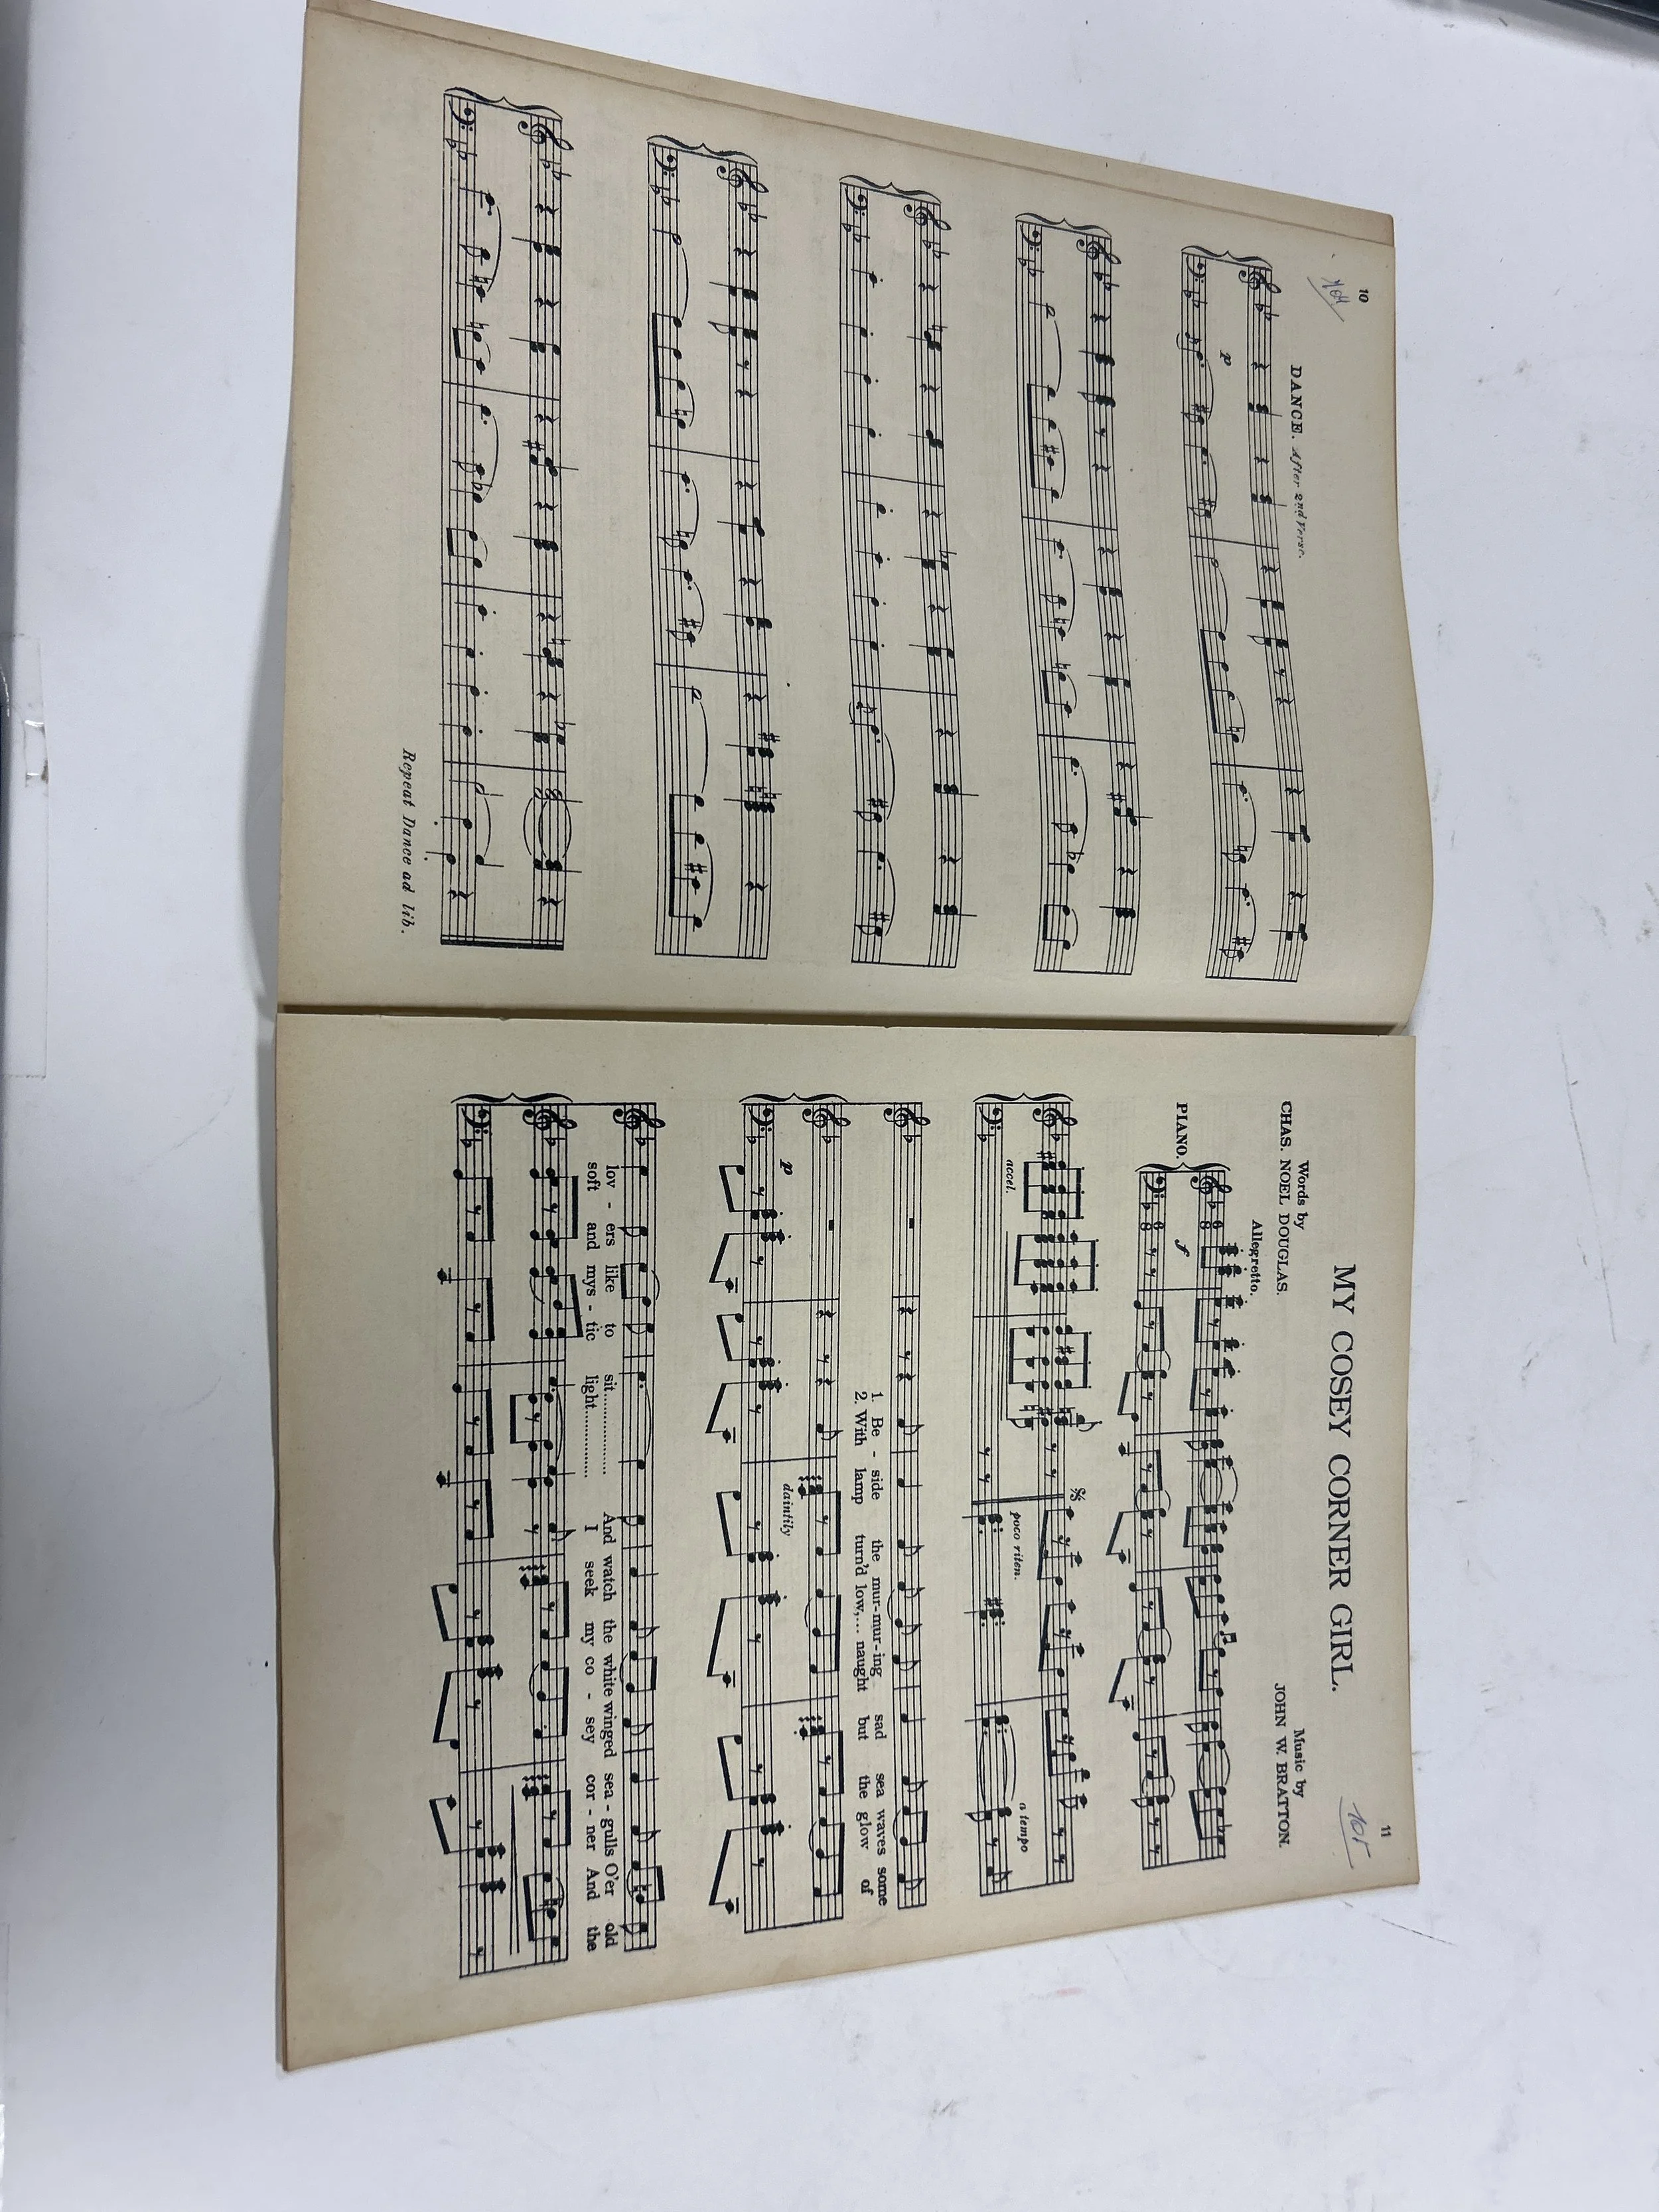 10
104
DANCE. After 2nd Verse.
p
Repeat Dance ad lib.
11
105
MY COSEY CORNER GIRL.
Words by
CHAS. NOEL DOUGLAS.
Music by
JOHN W. BRATTON.
Allegretto.
PIANO.
f
accel.
poco riten.
a tempo
1. Be - side the mur-mur-ing sad sea waves some
2. With lamp turn'd low,... naught but the glow of
p
daintily
lov - ers like to sit................ And watch the white winged sea - gulls O'er old
soft and mys - tic light.............. I seek my co - sey cor - ner And the